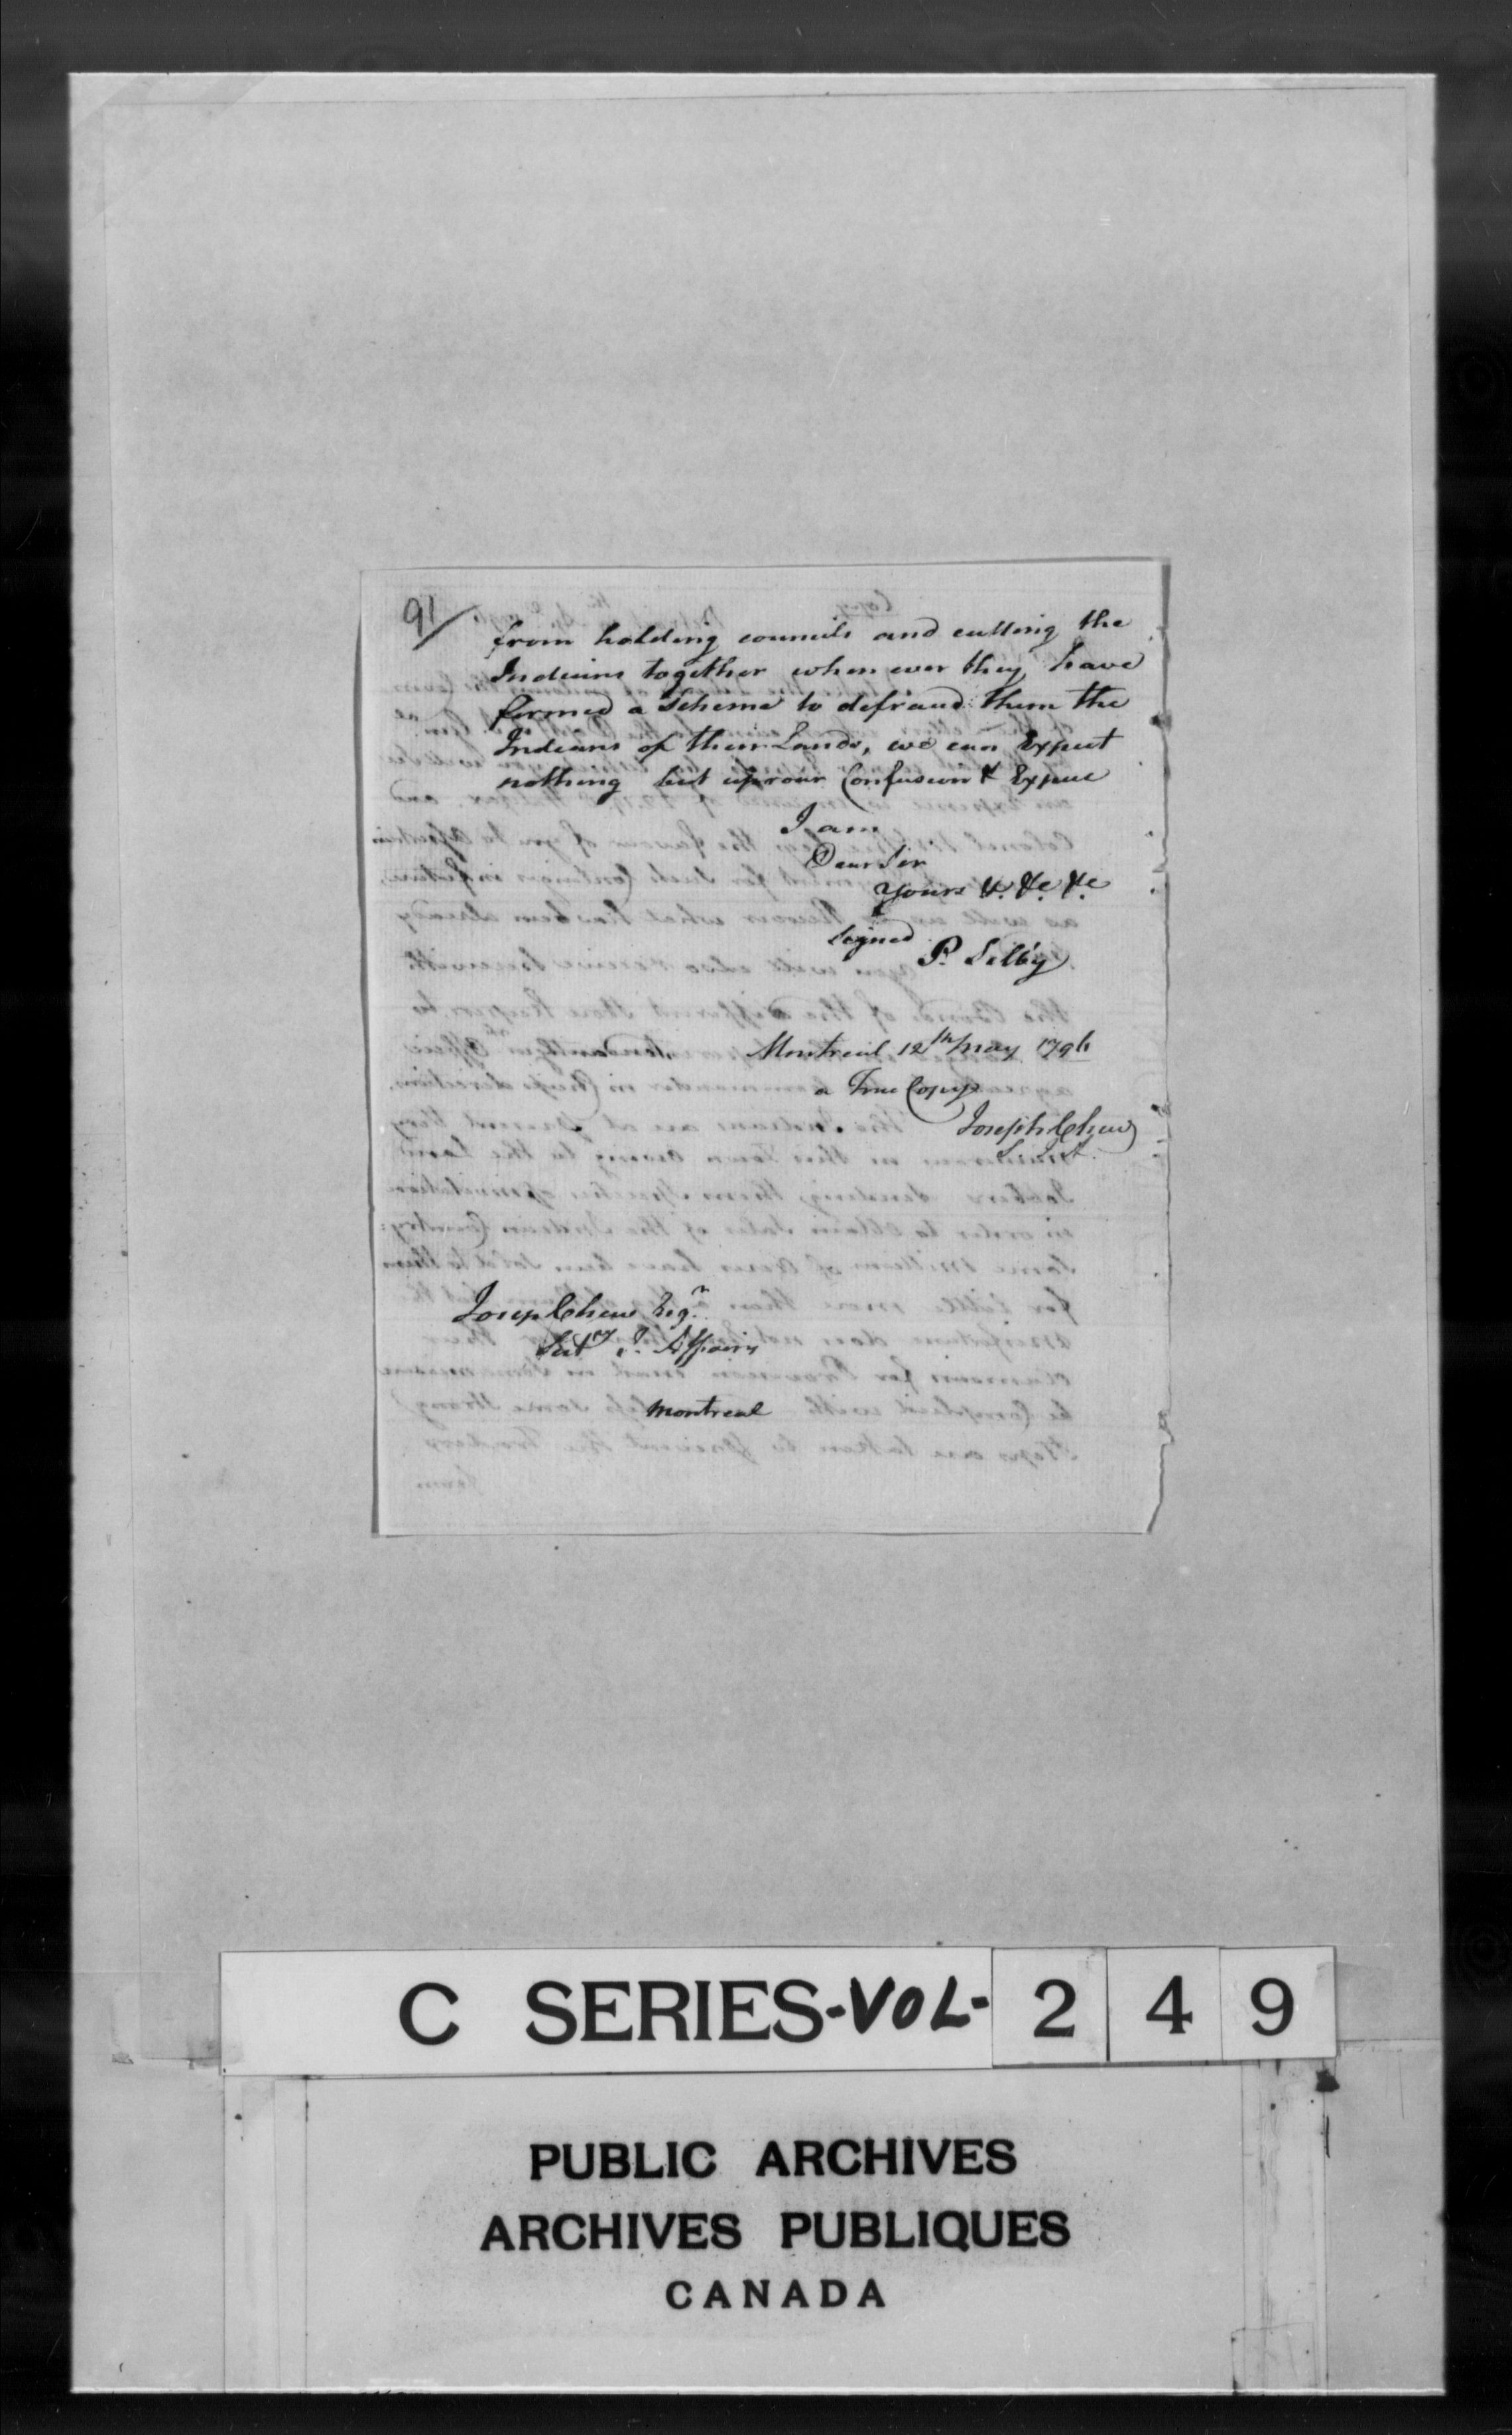 91/
from holding councils and calling the
Indians together when ever they have
formed a Scheme to defraud them the
Indians of their Lands, we can Expect
nothing but uproar Confusion & Expence
I am
Dear Sir
Yours &c. &c. &c.
Signed P. Selby
Montreal 12th May 1796
a True Copy
Joseph Chew
S I A
Josep Chew Esqr.
Secty I. Affairs
Montreal
C SERIES-VOL-249
PUBLIC ARCHIVES
ARCHIVES PUBLIQUES
CANADA